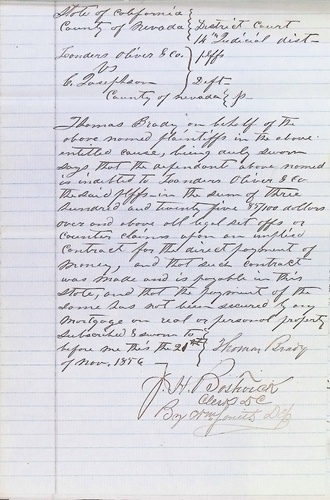 State of California } District Court
County of Nevada } 14th Judicial dist-
Landers Oliver & Co. } Plffs
vs
C. Josephson } Deft
County of Nevada }
Thomas Brady on behalf of the
above named plaintiffs in the above
entitled cause, being duly sworn
says that the defendant above named
is indebted to Landers Oliver & Co
the said plffs in the sum of three
hundred and twenty five /100 dollars
over and above all legal set offs or
counter claims upon an implied
Contract for the direct payment of
money, and that such contract
was made and is payable in this
State, and that the payment of the
same has not been secured by any
Mortgage on real or personal property
Subscribed & sworn to }
before me this the 21st } Thomas Brady
of Nov. 1856
J. H. Bostwick
Clerk D C
By Dpty